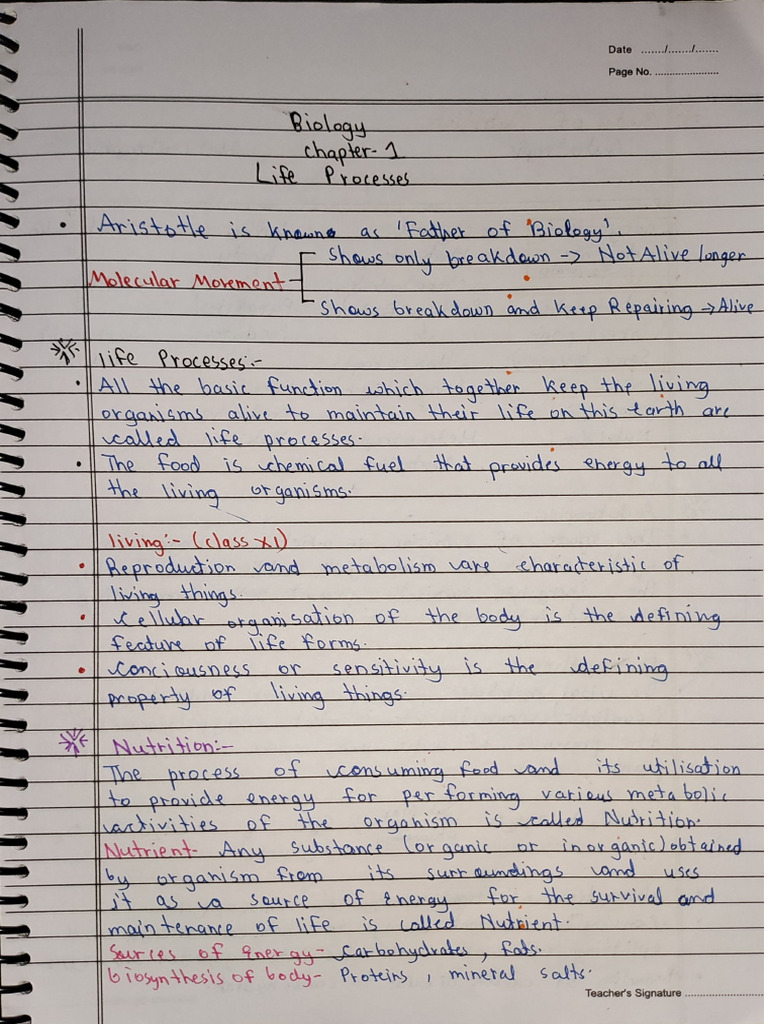 Date ......./......./.......
Page No. ......................
Biology
Chapter-1
Life Processes
• Aristotle is known as 'Father of Biology'.
Shows only breakdown -> Not Alive longer
Molecular Movement
Shows breakdown and keep Repairing -> Alive
life Processes:-
• All the basic function which together keep the living
organisms alive to maintain their life on this earth are
called life processes.
• The food is chemical fuel that provides energy to all
the living organisms.
living:- (class XI)
• Reproduction and metabolism are characteristic of
living things.
• Cellular organisation of the body is the defining
feature of life forms.
• Conciousness or sensitivity is the defining
property of living things.
Nutrition:-
The process of consuming food and its utilisation
to provide energy for performing various metabolic
activities of the organism is called Nutrition.
Nutrient- Any substance (organic or inorganic) obtained
by organism from its surroundings and uses
it as a source of energy for the survival and
maintenance of life is called Nutrient.
Sources of energy- carbohydrates, fats.
biosynthesis of body- Proteins, mineral salts.
Teacher's Signature ........................